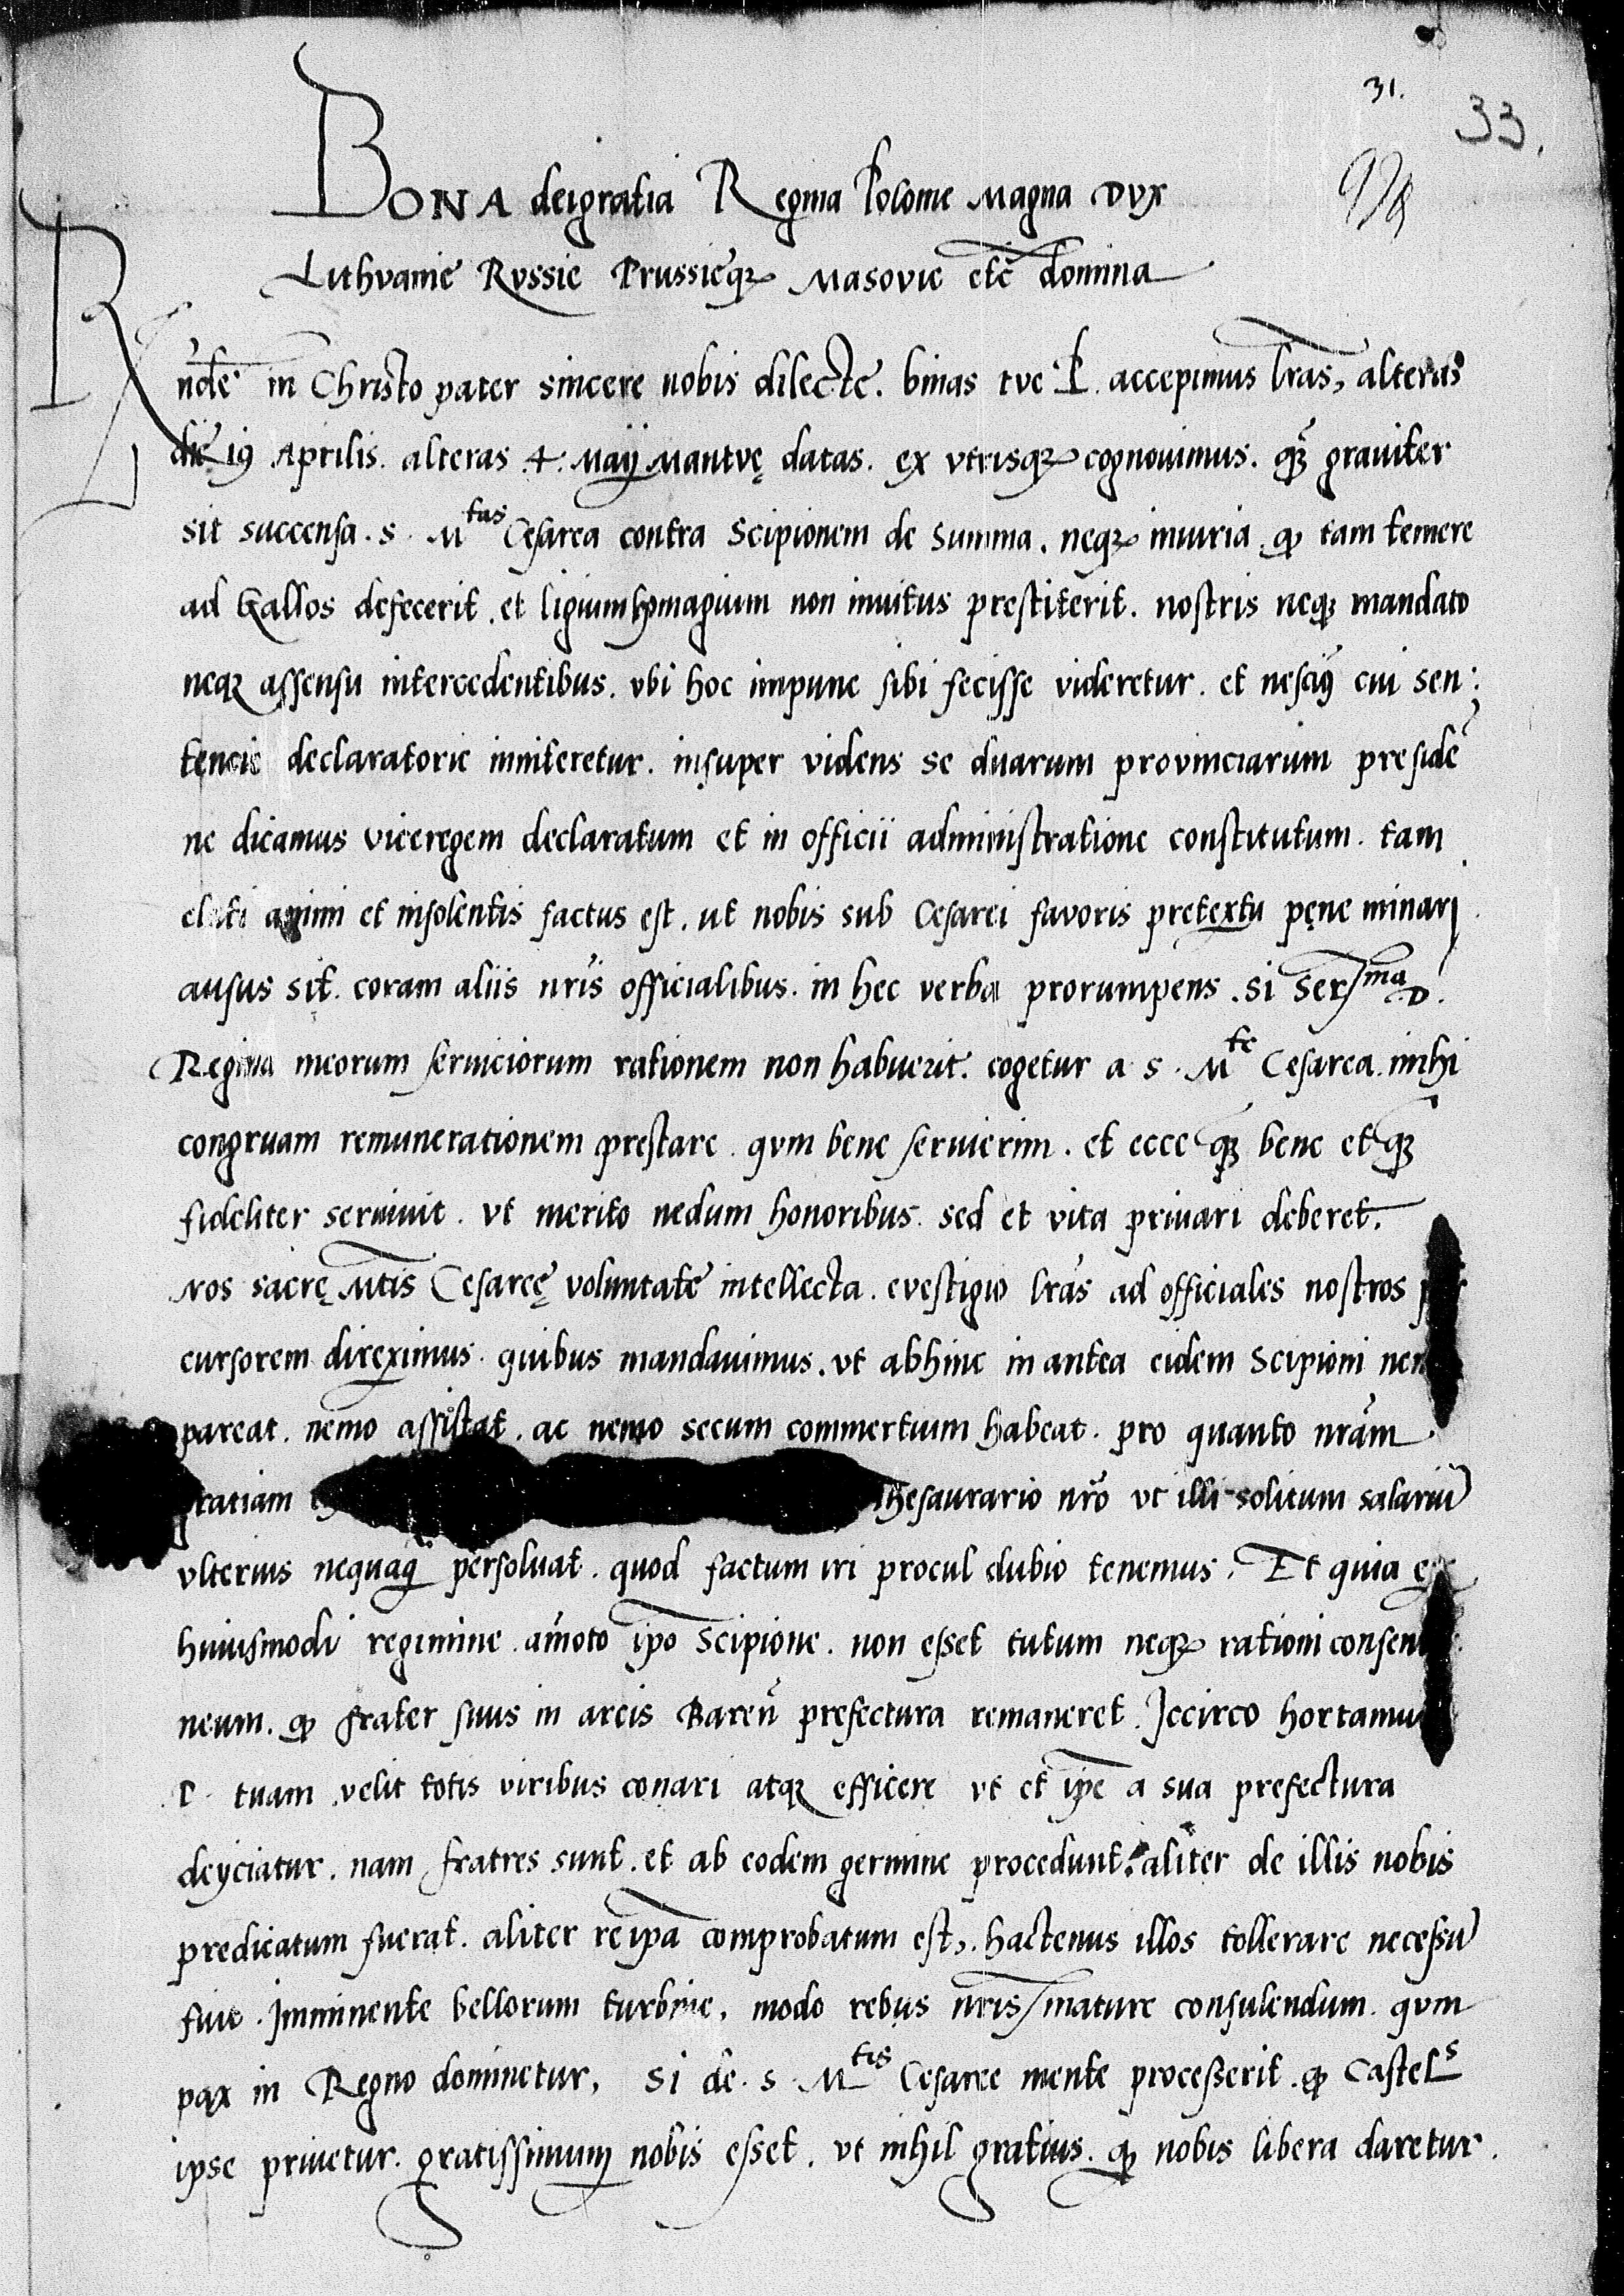 31.
33.
BONA deigratia Regina Polonie Magna Dvx
Lithvanie Rvssie Prussieqz Masovie etc̃ domina
Rñde in Christo pater sincere nobis dilecte. binas tve P. accepimus l̃ras, alteras
die 19 Aprilis. alteras 4. Maij Mantvę datas. ex vtrisqz cognovimus. qz̃ graviter
sit succensa. s. Mtas Cesarea contra Scipionem de Summa. neqz iniuria. qp tam temere
ad Gallos defecerit. et ligium homagium non invitus prestiterit. nostris neqz mandato
neqz assensu intercedentibus. vbi hoc impune sibi fecisse videretur. et nescių cui sen:
tencie declaratorie inniteretur. insuper videns se duarum provinciarum presidẽ
ne dicamus viceregem declaratum et in officii administratione constitutum. tam
elati animi et insolentis factus est. ut nobis sub Cesarei favoris pretextu pęne minari
ausus sit. coram aliis nr̃is officialibus. in hec verba prorumpens. si Serma D.
Regina meorum serviciorum rationem non habuerit. cogetur a s. Mte Cesarea. mihi
congruam remunerationem prestare. qvm bene servierim. et ecce qz̃ bene et qz̃
fideliter servivit. vt merito nedum honoribus. sed et vita privari deberet.
Nos sacrę Mt̃is Cesareę voluntatẽ intellecta. evestigio l̃ras ad officiales nostros
cursorem direximus. quibus mandavimus. vt abhinc in antea eidem Scipioni nem
pareat. nemo assistat. ac nemo secum commertium habeat. pro quanto nr̃am
gratiam thesaurario nr̃o vt illi solitum salariũ
vlterius nequaq̃ persolvat. quod factum iri procul dubio tenemus. Et quia ex
huiusmodi regimine amoto ip̃o Scipione. non esset tutum neqz rationi consen
neum. qp frater suus in arcis Bareñ prefectura remaneret. Iccirco hortamu
P. tuam velit totis viribus conari atqz efficere vt et ip̃e a sua prefectura
deijciatur. nam fratres sunt. et ab eodem germine procedunt. aliter de illis nobis
predicatum fuerat. aliter re ip̃a comprobatum est. hactenus illos tollerare necessũ
fuit. Imminente bellorum turbine. modo rebus nr̃is mature consulendum. qvm
pax in Regno dominetur. Si de s. Mtis Cesaree mente processerit. qp Castels
ipse privetur. gratissimum nobis esset. vt nihil gratius. qp nobis libera daretur.